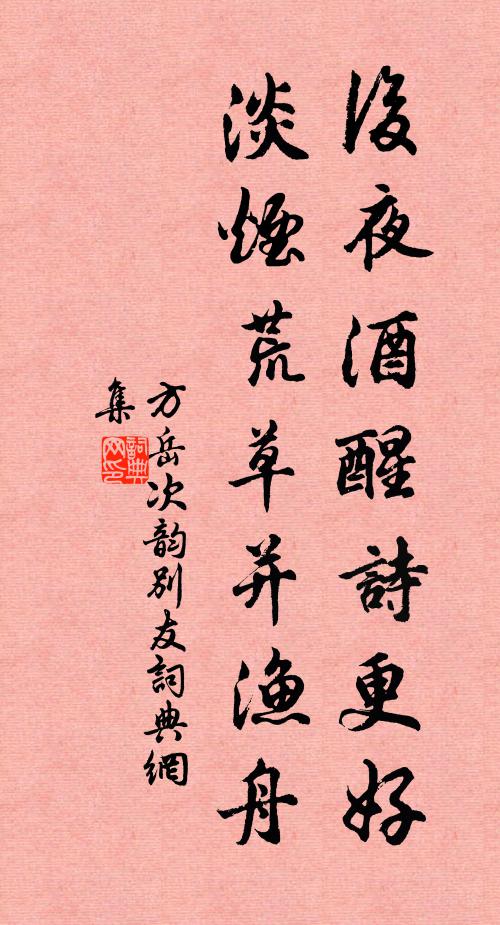 後夜酒醒詩更好
淡煙荒草并漁舟
方岳次韵别友詞典網
集
詞典网印